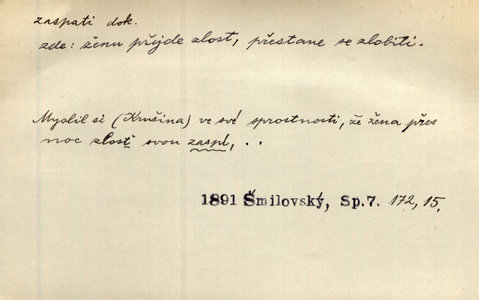 zaspati dok.
zde: ženu přejde zlost, přestane se zlobiti.
Myslil si (Krušina) ve své sprostnosti, že žena přes
noc zlost svou zaspí, ..
1891 Šmilovský, Sp.7. 172,15.